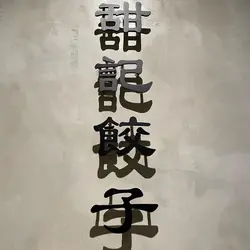 甜記餃子